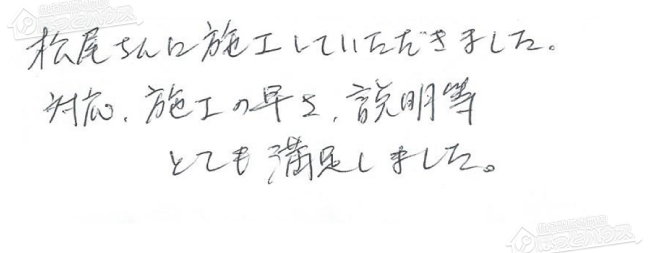 松尾さんに施工していただきました。
対応、施工の早さ、説明等
とても満足しました。